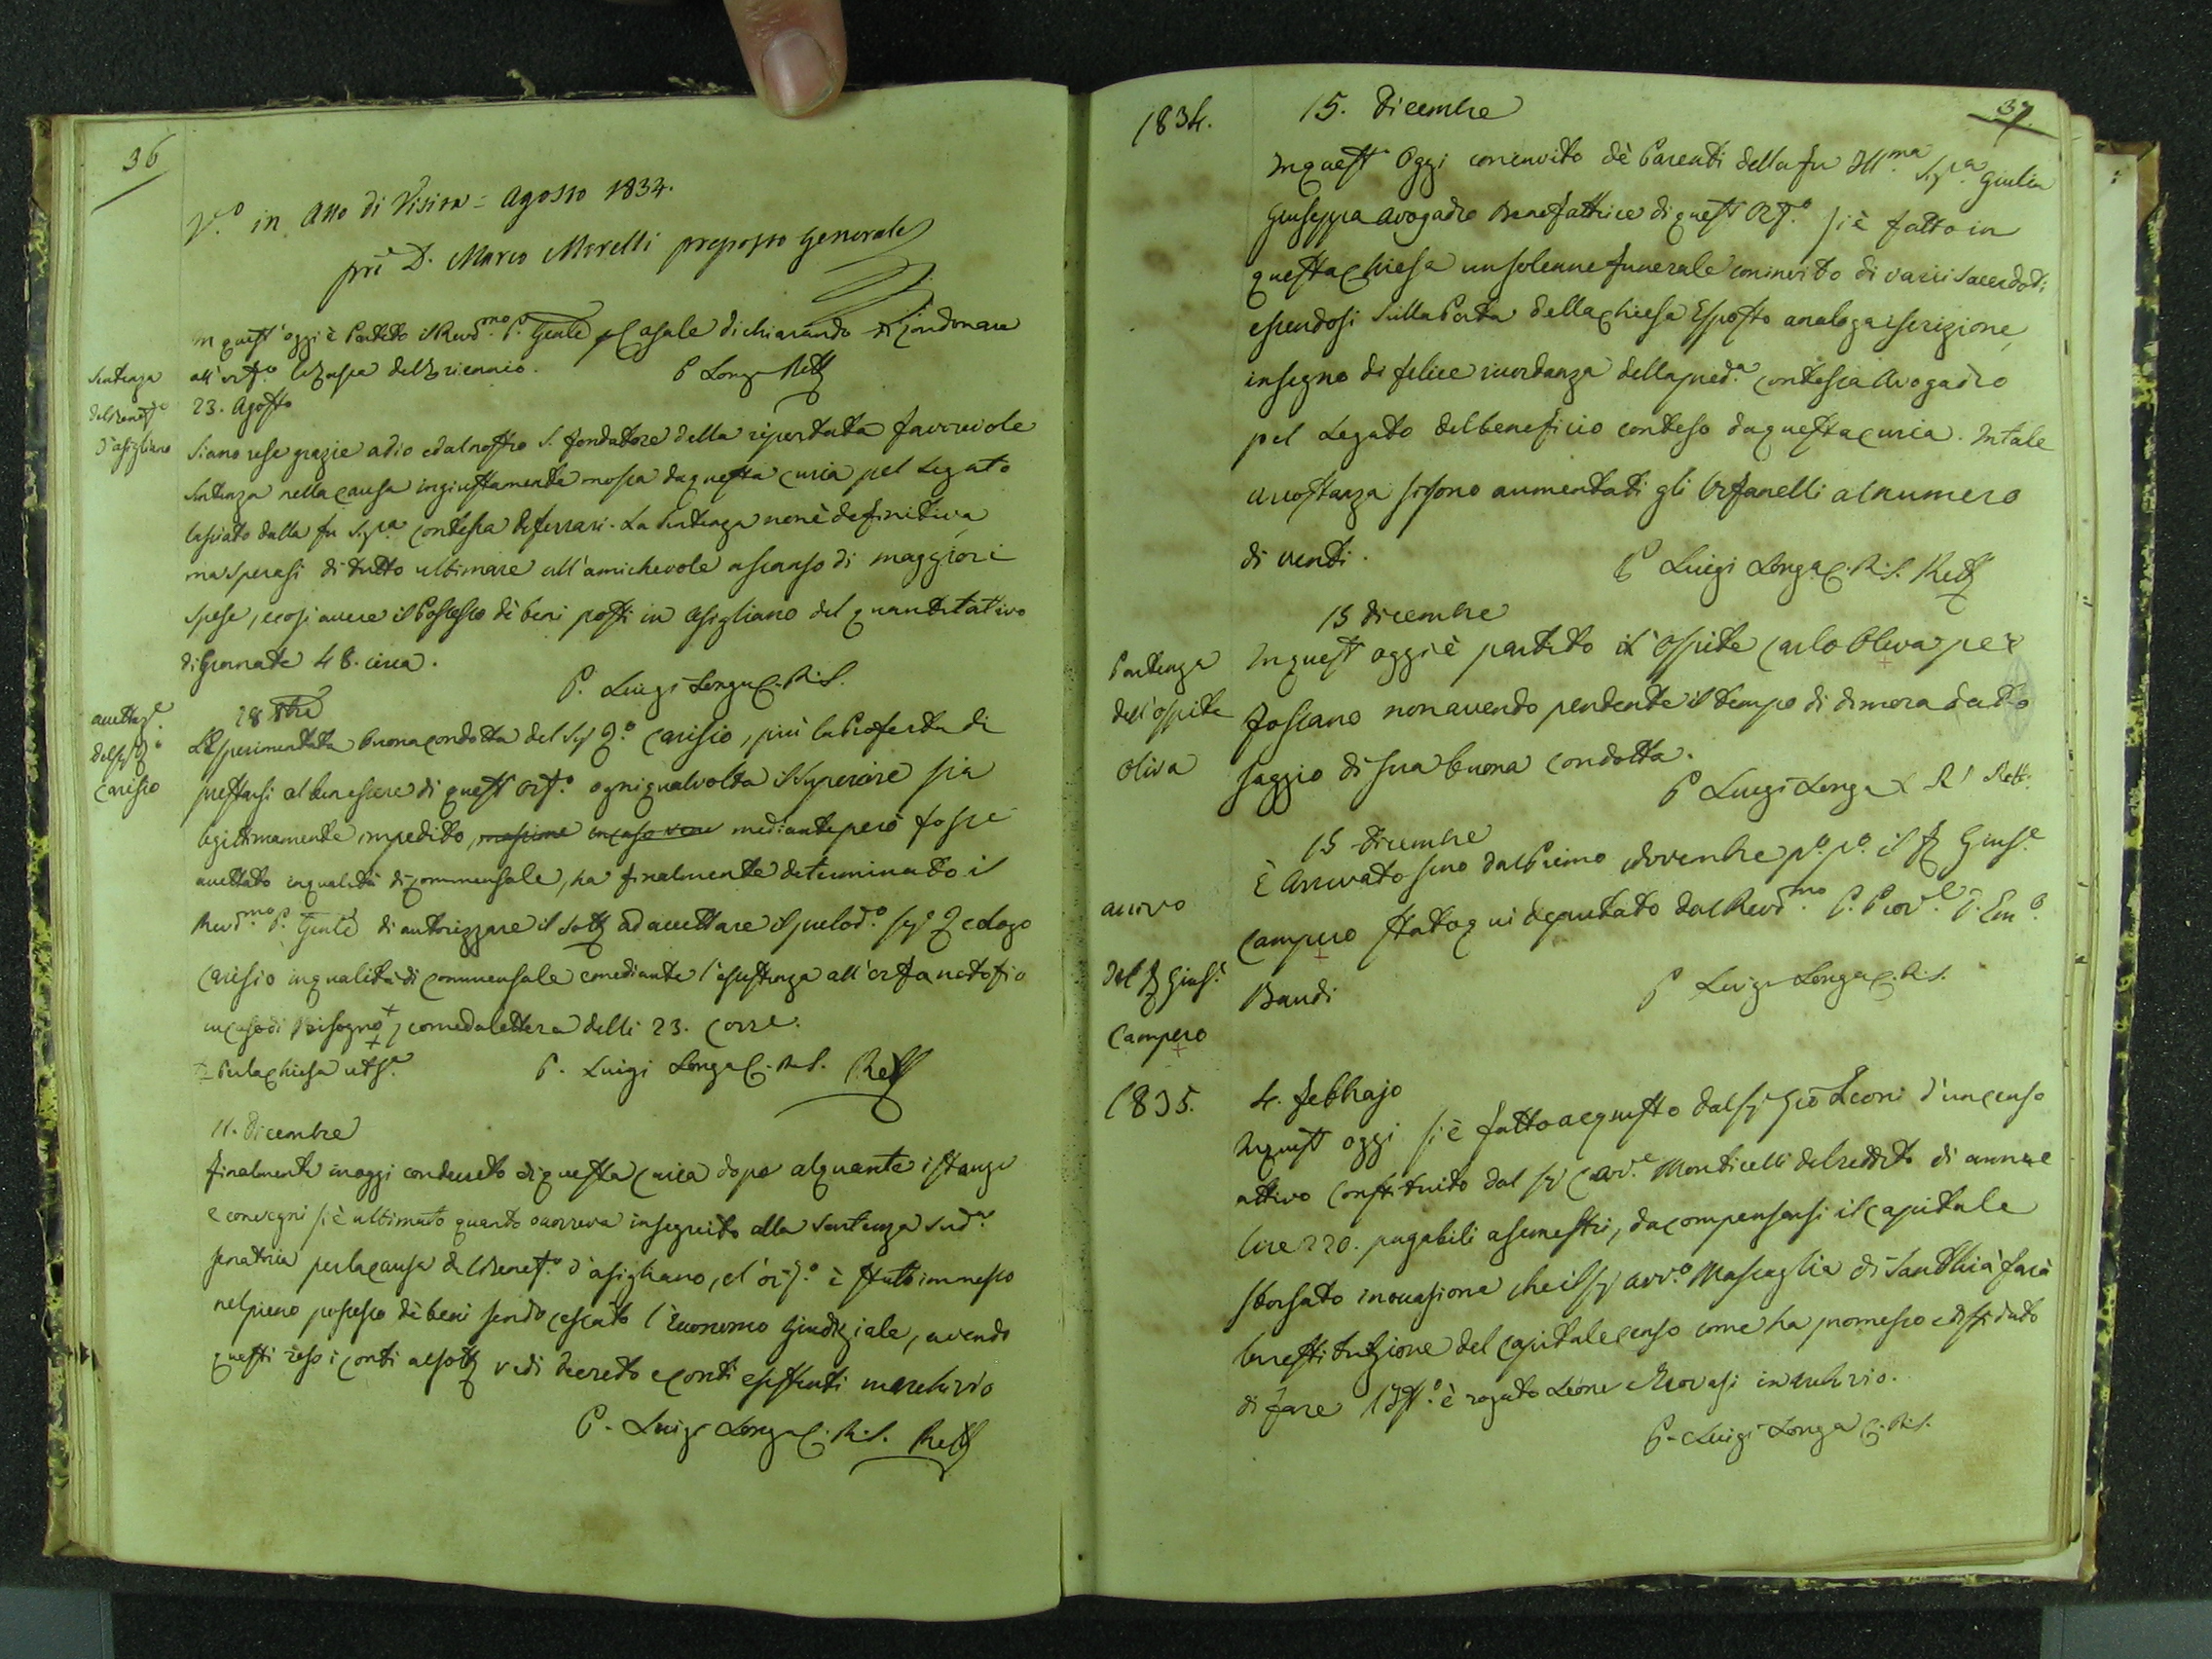 36
V.º in Atto di Visita = Agosto 1834.
pre D. Marco Morelli preposto Generale
In quest'oggi è Partito il Revd.mo P. Gente p Casale dichiarando di condonare
all'orf.º del triennio. P Longa Rett
Sentenza
del Benef.º
d'asigliano
23. Agosto
Siano rese grazie a dio ed al nostro S. fondatore della riportata favorevole
Sentenza nella causa ingiustamente mossa da questa curia pel Legato
lasciato dalla fu Sig.ra Contessa Deferrari. La Sentenza non è definitiva
ma sperasi di tutto ultimare all'amichevole a scanso di maggiori
spese, e cosi avere il Possesso dè beni posti in Asigliano del quantitativo
di Giornate 48. circa.
P. Luigi Longa C. R. S.
Carisio
28 8bre
L'Esperimentata buona condotta del Sig Carisio, più la Proferta di
prestarsi al ben essere di quest Orf.º ogni qual volta il Superiore sia
legittimamente impedito, mediante però fosse
accettato in qualità di commensale, ha finalmente determinato il
Revd.mo P. Gente di autorizzare il Sott ad accettare il prelod.º Sig.
Carisio in qualità di commensale e mediante l'assistenza all'orfanotrofio
in caso di Bisogno + come da lettera delli 23. Corre.
+ Per la chiesa P. Luigi Longa C. R. S. Rett
11. Dicembre
finalmente in oggi con decreto di questa Curia dopo alquante istanze
e convegni si è ultimato quanto occorreva in seguito alla Sentenza Sud.a
Senatoria per la causa del Benef.º d'asigliano, e l'orf.º è stato immesso
nel pieno possesso dè beni sendo cessato l'Economo Giudiziale, avendo
questi reso i conti al sott vedi Decreto e conti esistenti in archivio
P. Luigi Longa C. R. S. Rett
37.
1834.
15. Dicembre
In quest Oggi con invito dè Parenti della fu Ill.ma Sig.ra Giulia
Giuseppa Avogadro Benefattrice di quest Orf.º si è fatto in
questa Chiesa un solenne funerale con invito di varii Sacerdoti
essendosi Sulla Porta della chiesa Esposto analoga iscrizione,
in segno di felice ricordanza della pred.a Contessa Avogadro
pel Legato del beneficio conteso da questa curia. In tale
circostanza si sono aumentati gli Orfanelli al numero
di venti.
P Luigi Longa C. R. S. Rett
Partenza
dell'ospite
Oliva
15 dicembre
In quest oggi è partito l'ospite Carlo Oliva per
fossano non avendo pendente il tempo di dimora dato
saggio di sua buona condotta.
P Luigi Longa C R S Rett.
arrivo
del Giuse.
Campero
15 dicembre
È Arrivato sino dal Primo Novembre p.º p.º il Giuse.
Campero stato qui deputato dal Revd.mo P. Prov.le
Baudi
P Luigi Longa C. R. S.
1835.
4. febbrajo
In quest oggi si è fatto acquisto dal Sig Gio Leoni d'un censo
attivo constituito dal Sig Cav.e Monticelli del reddito di annue
lire 220. pagabili a semestri, da compensarsi il capitale
sborsato in occasione che il Sig Avv.º Mascaglia di Santhià farà
la restituzione del Capitale censo come ha promesso e diffidato
di fare è rogato Leone e trovasi in archivio.
P. Luigi Longa C. R. S.